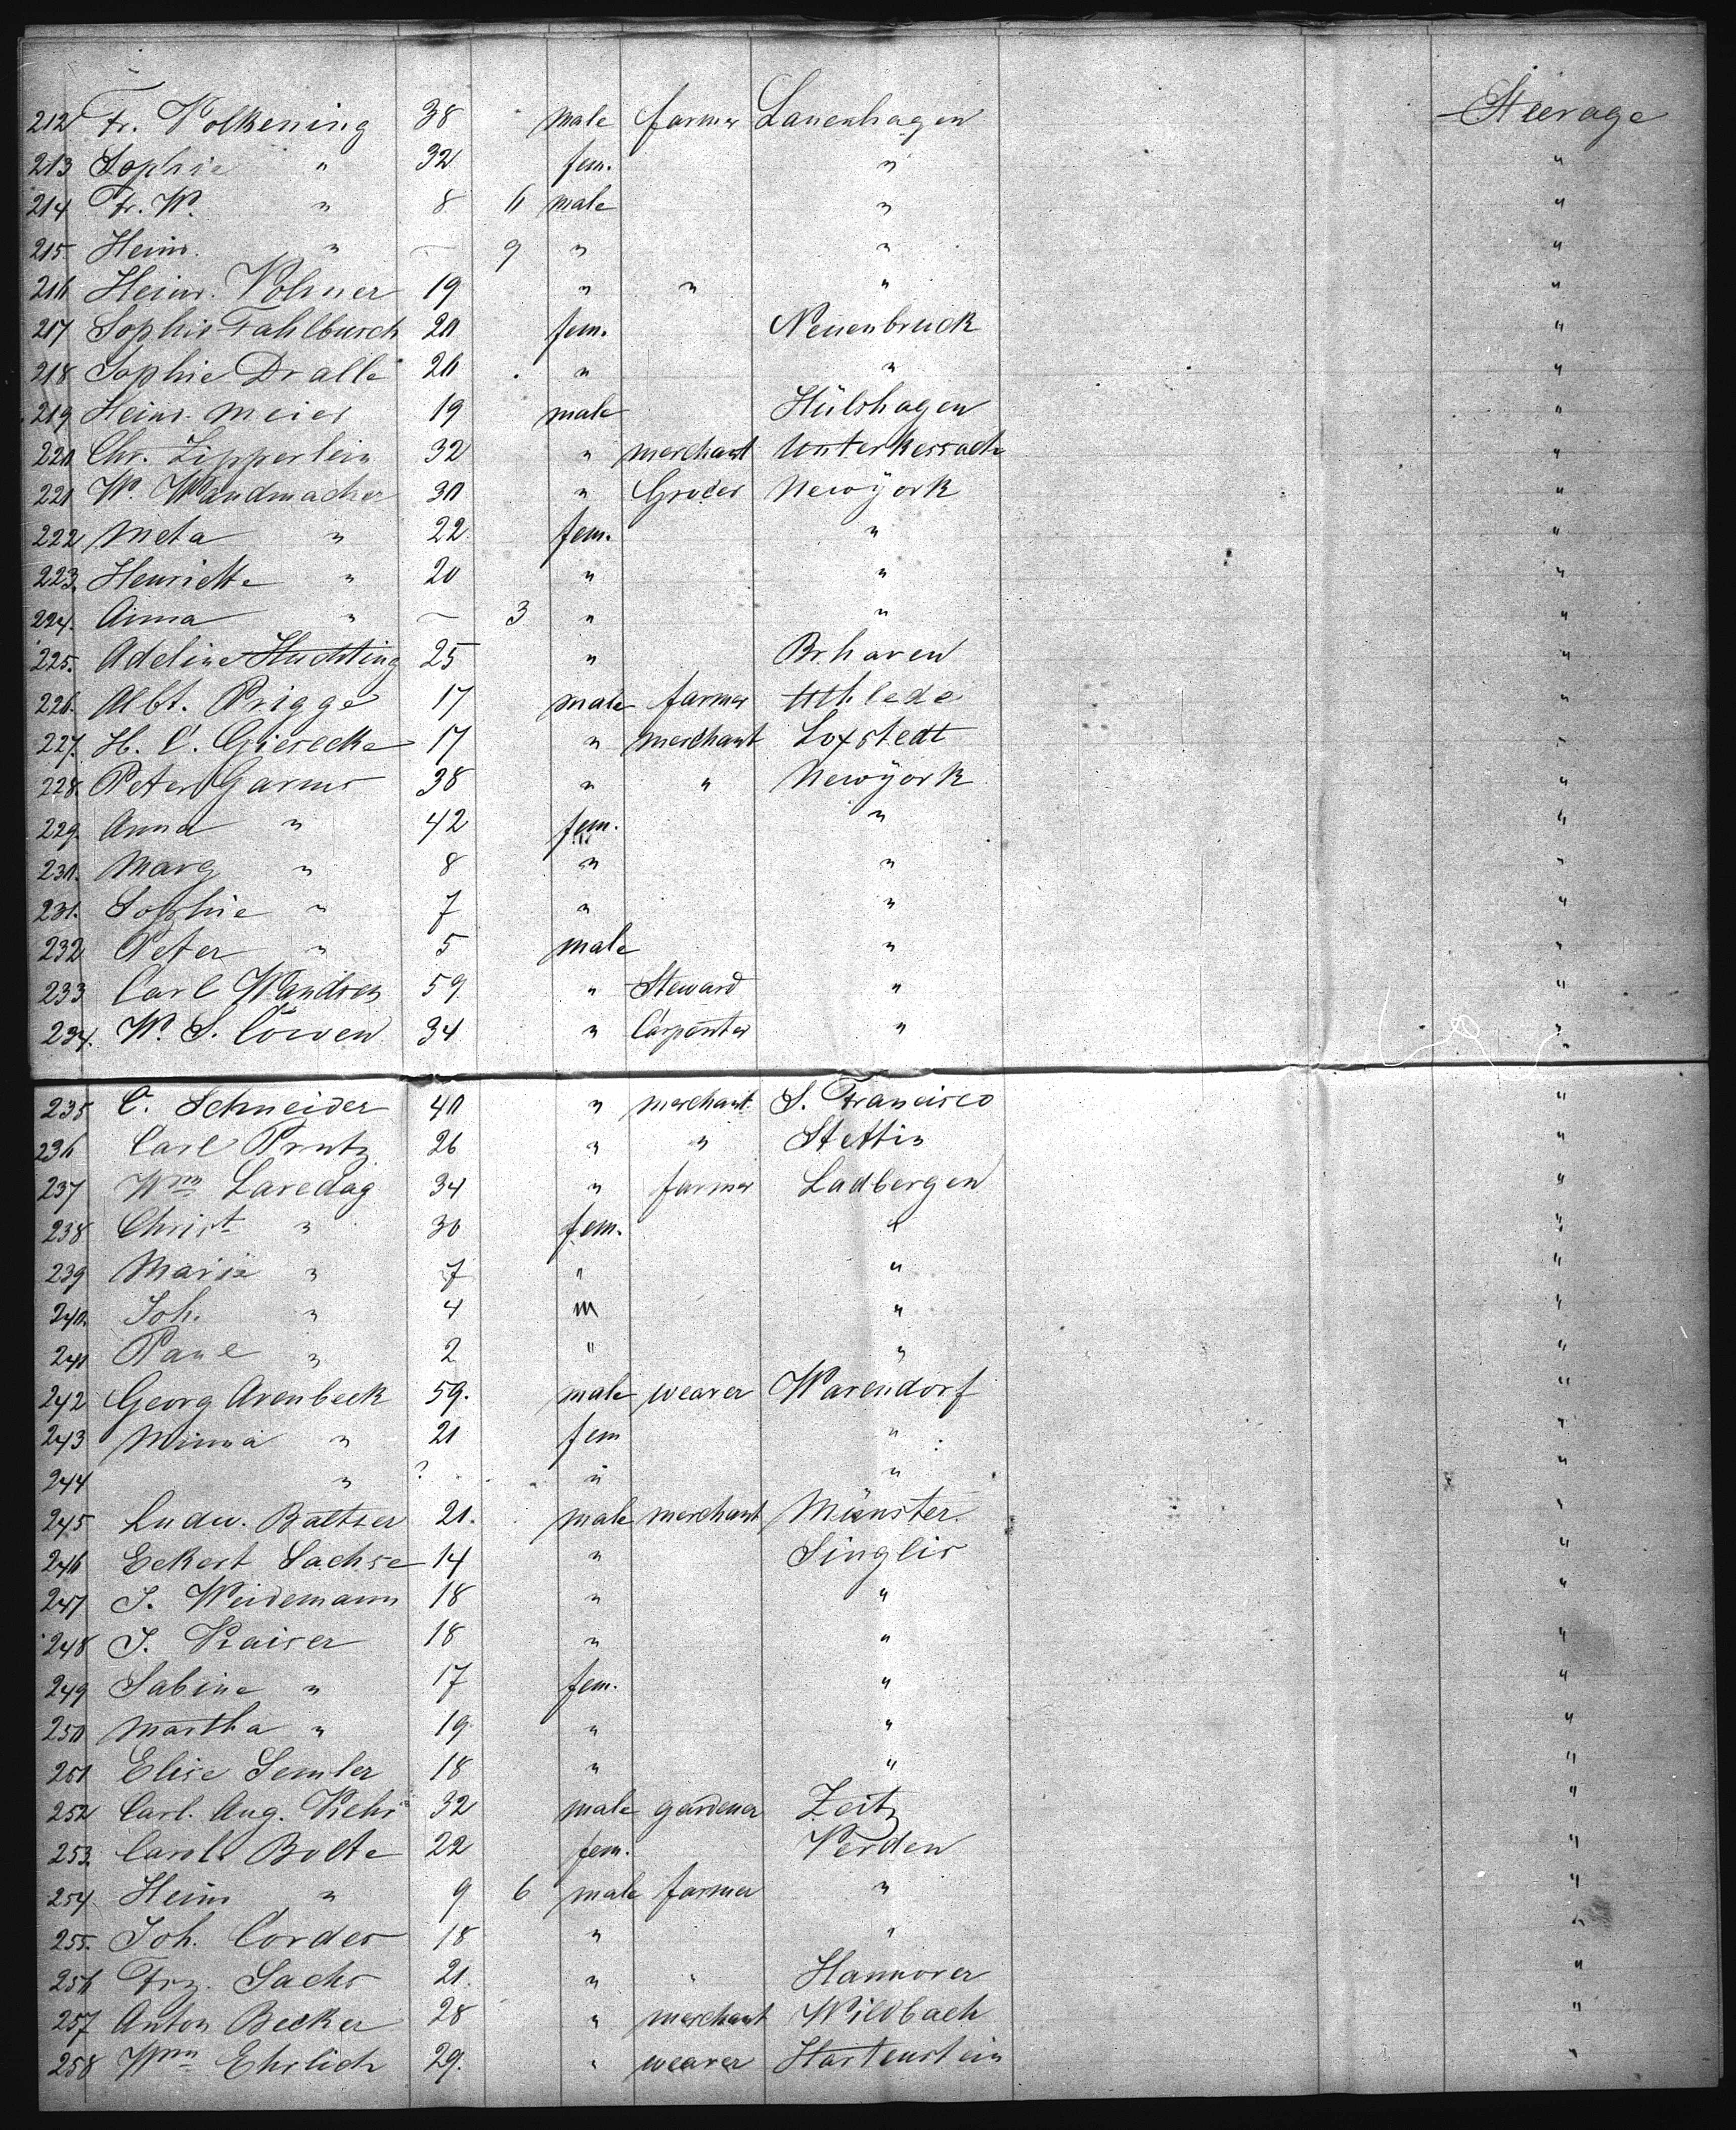 212 Fr. Volkening 38 male farmer Lauenhagen Steerage
213 Sophie " 32 fem. " "
214 Fr. W. " 8 11 male " "
215 Heinr. " – 9 " " "
216 Heinr. Volmer 19 " " " "
217 Sophie Fahlbusch 20 fem. Neuenbruck "
218 Sophie Dralle 20 " " "
219 Heinr. Meier 19 male Hülshagen "
220 Chr. Zipperlein 32 " merchant Unterkessach "
221 W. Wandmacher 30 " Grocer Newyork "
222 Meta " 22 fem. " "
223. Henriette " 20 " " "
224. Anna " – 3 " " "
225. Adeline Huchting 25 " Brhaven "
226. Albt. Prigge 17 male farmer Uthlede "
227. H. C. Giesecke 17 " merchant Loxstedt "
228. Peter Garms 38 " " Newyork "
229. Anna " 42 fem. " "
230. Marg " 8 " " "
231. Sophie " 7 " " "
232 Peter " 5 male " "
233 Carl Wandres 59 " Steward " "
234. W. S. Corven 34 " Carpenter " "
235 C. Schneider 40 " merchant S. Francisco "
236 Carl Prutz 26 " " Stettin "
237 Wm Laredag 34 " farmer Ladbergen "
238 Christ " 30 fem. " "
239 Marie " 7 " " "
240. Joh. " 4 m " "
241 Paul " 2 " " "
242 Georg Arenbeck 59. male weaver Warendorf "
243 Minna " 21 fem " "
244 " ? " " "
245 Ludw. Baltser 21. male merchant Münster. "
246 Eckert Sachse 14 " Singlis "
247 J. Weidemann 18 " " "
248 J. Kaiser 18 " " "
249 Sabine " 17 fem. " "
250 Martha " 19 " " "
251 Elise Semler 18 " " "
252 Carl. Aug. Kehr 32 male gardener Zeitz "
253. Carol. Bolte 22 fem. Verden "
254 Heinr " 9 6 male farmer " "
255. Joh. Cordes 18 " " "
256 Frz. Sachs 21. " " Hannover "
257 Anton Becker 28 " merchant Wildbach "
258 Wm Ehrlich 29. " weaver Hartenstein "